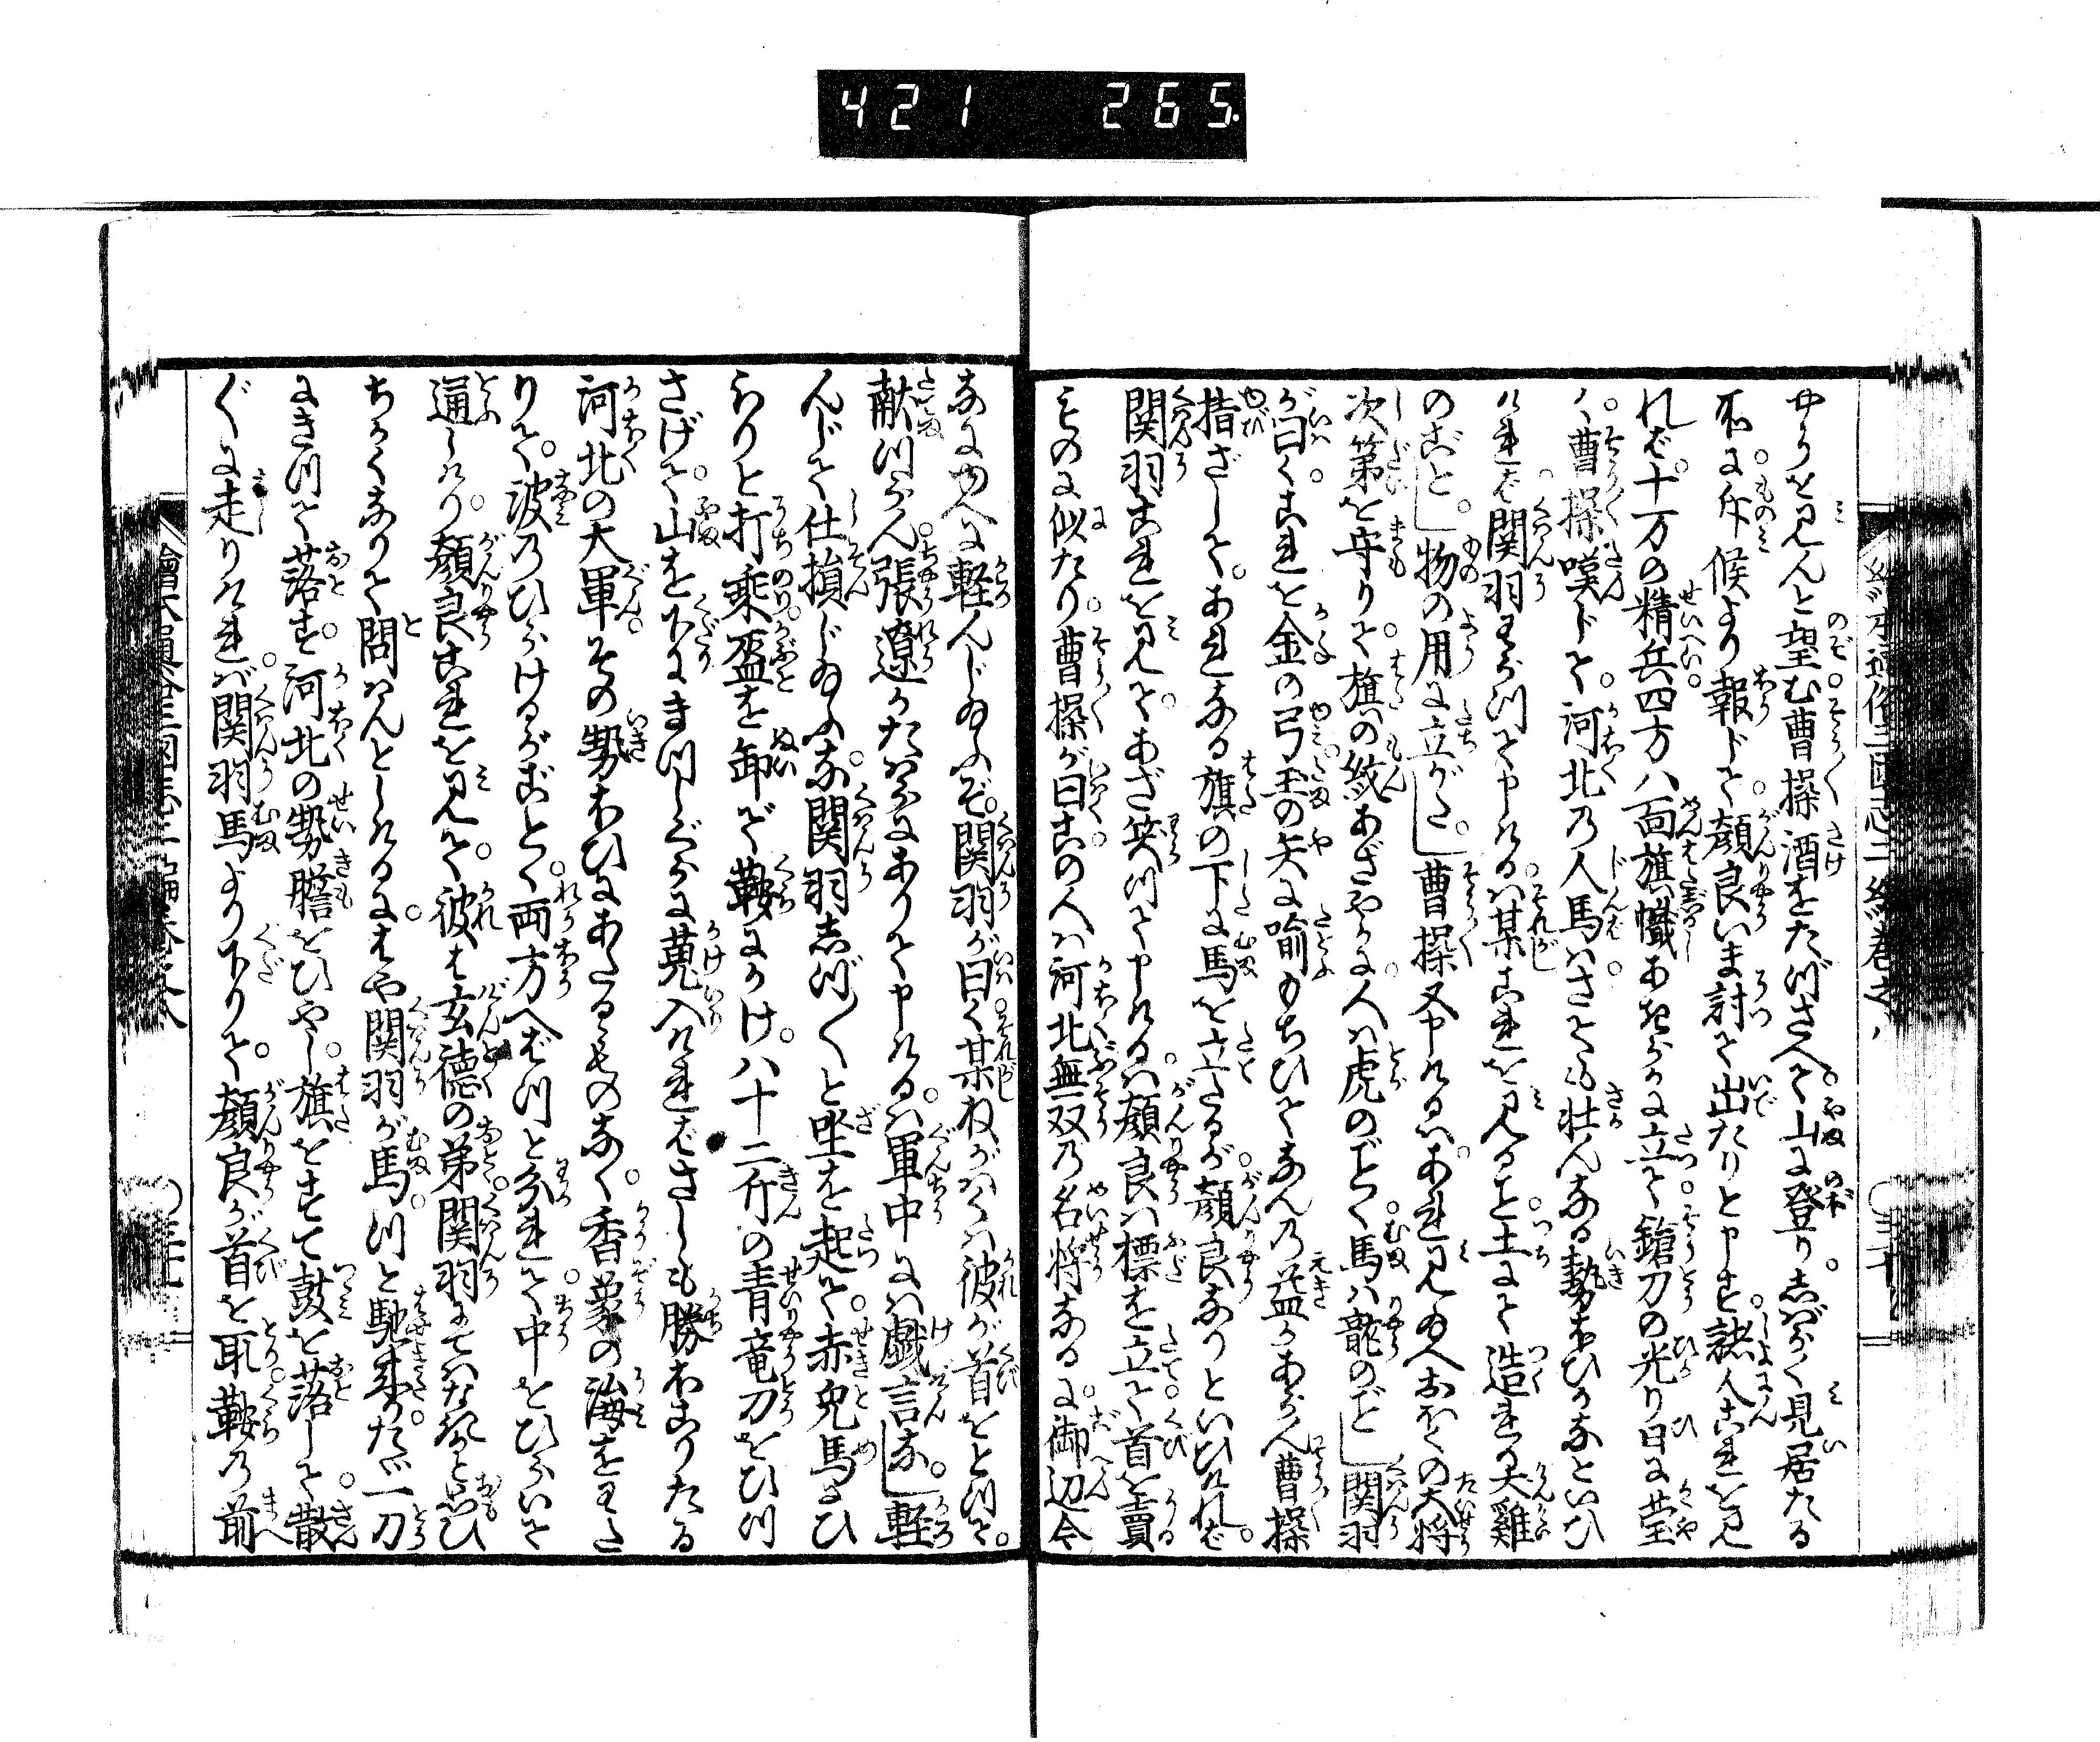 421 265
やうを見んと望む曹操酒をたづさへ。山に登り。しばらく見居たる
所に。斥候より報じて。顔良いま討て出たりと申す。諸人これを見
れば。十万の精兵。四方八面旗幟あざやかに立て。鎗刀の光り日に瑩
く。曹操嘆じて。河北の人馬は。さても壮んなる勢ひかなといひ
ければ。関羽わらつて申けるは。某これを見るを。土にて造れる犬雞
のごと。」物の用に立がた。」曹操又申けるは。あれ見給へおほくの大将
次第を守りて。旗の紋あざやかに。人は虎のごとく。馬は龍のごと」関羽
が曰く。これを金の弓。玉の矢に喩もちひてなんの益かあらん曹操
指ざして。あれなる旗の下に馬を立たるが。顔良なりといひければ。
関羽これを見て。あざ笑つて申けるは。顔良は標を立て。首を賣
ものに似たり。曹操が曰く。この人は河北無双の名将なるに。御辺今
なにゆへに軽んじ給ふぞ。関羽が曰く。某ねがはくは彼が首をとつて。
献つらん。張遼かたはらにありて申けるは。軍中には戯言な。」軽
んじて仕損じ給ふな。関羽しづ〳〵と坐を起て。赤兎馬にひ
らりと打乗。盔を卸で鞍にかけ。八十二斤の青竜刀をひつ
さげて。山を下にまつしぐらに蒐入ければさしも勝ほこりたる
河北の大軍。その勢ひにあたるものなく。香象の海をわた
りて。波のひらけるがごとく。両方へばつと分れて。中をひらいて
通しけり。顔良これを見て。彼は玄徳の弟。関羽にてはなきかと思ひ
ちかくなりて問はんとしけるに。はや関羽が馬。つと馳来り。たゞ一刀
にきつて落す。河北の勢膽をひやし。旗をすて鼓を落して。散
ぐに走りければ。関羽馬より下りて。顔良が首を取。鞍の前